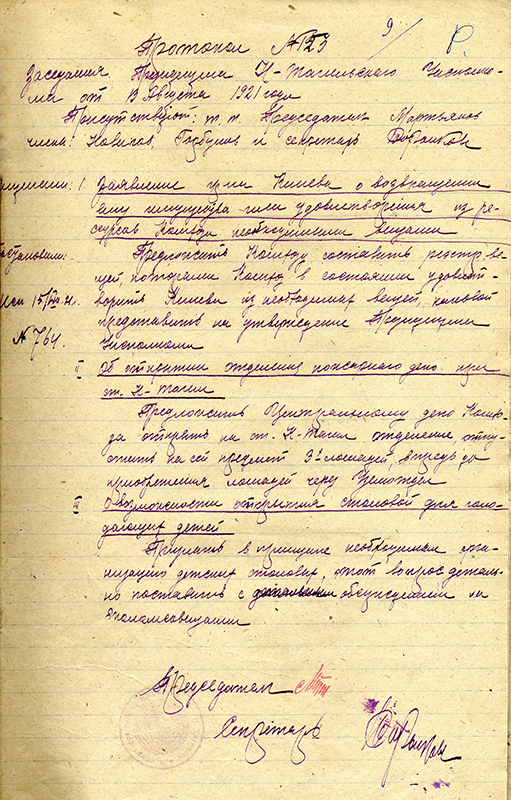 9/ Р.
Протокол №123
Заседания Президиума Н-Тагильского Исполко-
ма от 13 Августа 1921 года
Присутствуют: т.т. Председатель Мартьянов
члены: Новиков, Горбунов и секретарь
1 Заявление гр-на Кишева о возвращении
ему имущества или удовлетворения из ре-
сурсов Комхоза необходимыми вещами
Предложить Комхозу составить реэстр ве-
щей, которыми Комхоз в состоянии удовлет-
ворить Кишева из необходимых вещей, каковой
представить на утверждение Президиума
Исполкома
Исп 15/VIII 21г.
№ 764
II Об открытии отделения пожарного депо при
ст. Н-Тагил
Предложить Центральному депо Комхо-
за открыть на ст. Н-Тагил отделение, отпу-
стить на сей предмет 3х лошадей, впредь до
приобретения лошадей через
III О возможности открытия столовой для голо-
дающих детей
Признать в принципе необходимым орга-
низацию детских столовых, этот вопрос деталь-
но поставить с обсуждением на
Председатель
Секретарь